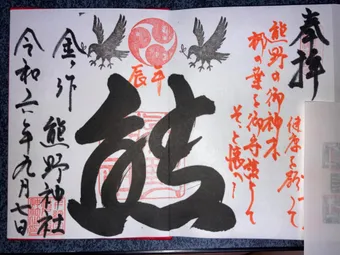 奉拝
健康を願って
熊野の御神木
梛の葉を御守として
そっと懐へ
熊
金ヶ作 熊野神社
令和六年九月七日